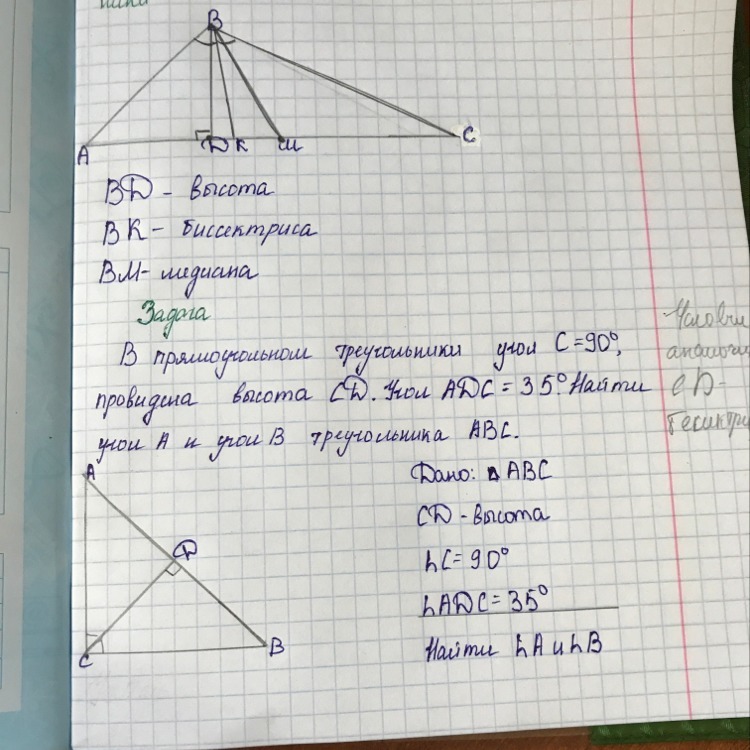 B
A D K M C
BD - высота
BK - биссектриса
BM - медиана
Задача
В прямоугольном треугольники угол C = 90°,
провидена высота CD. Угол ADC = 35°. Найти
угол A и угол B треугольника ABC.
A
D
C B
Дано: ΔABC
CD - высота
∟C = 90°
∟ADC = 35°
Найти ∟A и ∟B
CD -